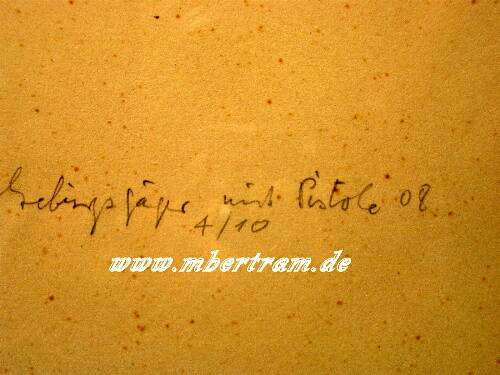 Gebirgsjäger mit Pistole 08
4/10
www.mbertram.de